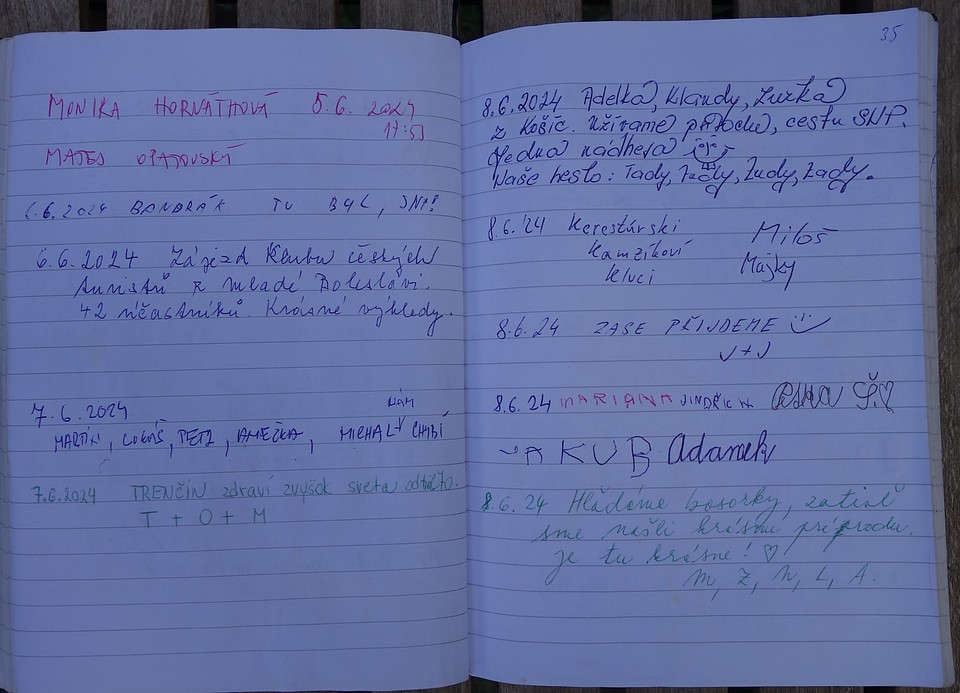 MONIKA HORVÁTHOVÁ 5.6. 2024
17:53
MATEJ OPATOVSKÝ
6.6.2024 BANDRÁK TU BYL, SNP!
6.6.2024 Zájezd Klubu českých
turistů z Mladé Boleslavi.
42 účastníků. Krásné výhledy.
7.6.2024
MARTIN, LUKÁŠ, PETZ, ANEČKA, MICHAL NÁM CHYBÍ
7.6.2024 TRENČÍN zdraví zvyšok sveta odtialto.
T + O + M
35
8.6.2024 Adelka, Klaudy, Zuzka
z Košíc. Užívame prírodu, cestu SNP.
Jedna nádhera
Naše heslo: Tady, Tedy, Zudy, Zady.
8.6.'24 Kerestúrski Miloš
kamzíkoví Majky
kluci
8.6.24 ZASE PŘIJDEME
J+J
8.6.24 MARIANA JINDŘICH Š.
JAKUB Adamek
8.6.24 Hľadáme bosorky, zatiaľ
sme našli krásnu prírodu.
Je tu krásne! ♡
M, Z, N, L, A.